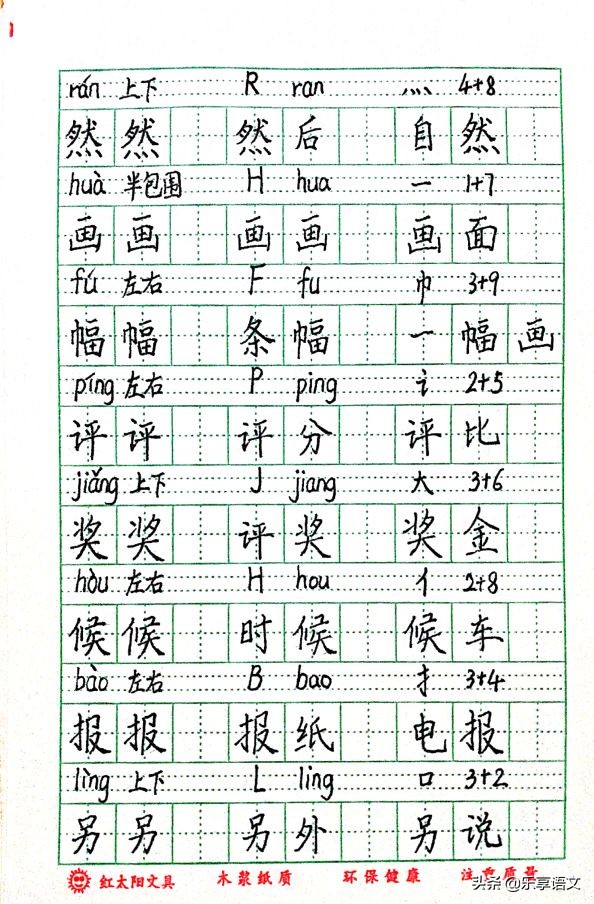 rán 上下 R ran 灬 4+8
然 然 然 后 自 然
huà 半包围 H hua 一 1+7
画 画 画 画 画 面
fú 左右 F fu 巾 3+9
幅 幅 条 幅 一 幅 画
píng 左右 P ping 讠 2+5
评 评 评 分 评 比
jiǎng 上下 J jiang 大 3+6
奖 奖 评 奖 奖 金
hòu 左右 H hou 亻 2+8
候 候 时 候 候 车
bào 左右 B bao 扌 3+4
报 报 报 纸 电 报
lìng 上下 L ling 口 3+2
另 另 另 外 另 说
红太阳文具 木浆纸质 环保健康 注重质量
头条@乐享语文